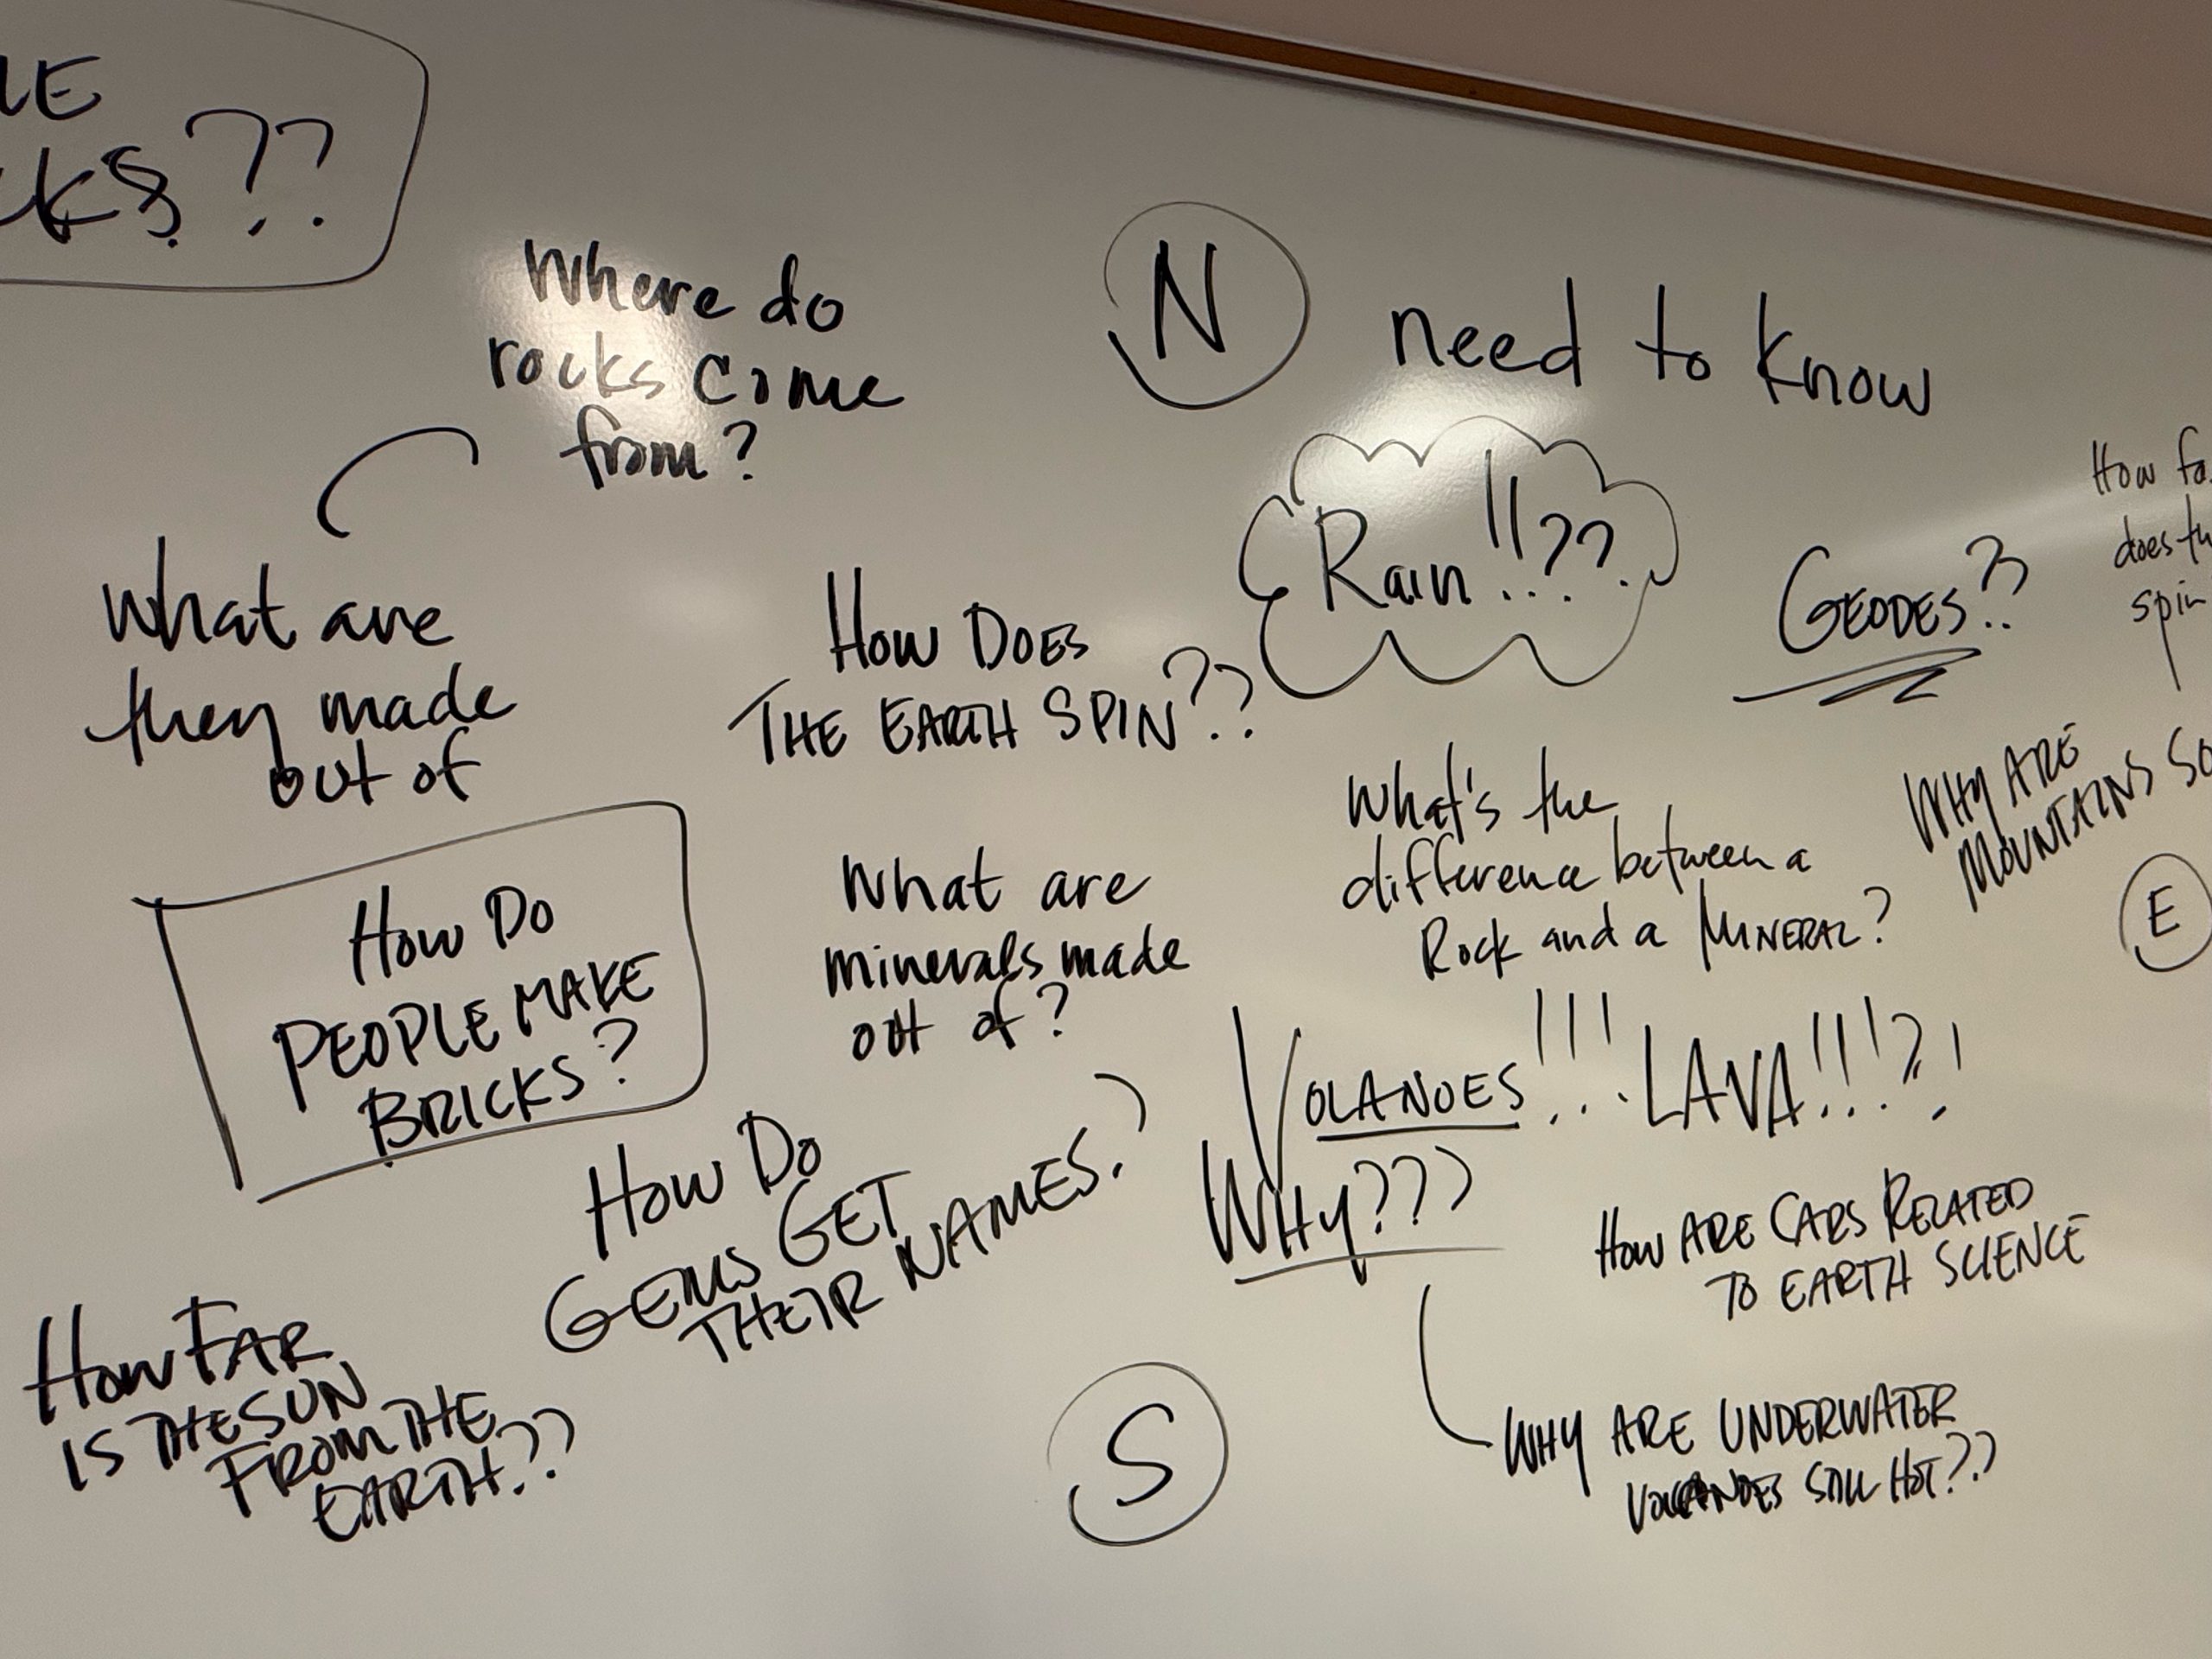 ??
Where do
rocks come
from?
N
need to know
Rain!!??
GEODES??
How
spin
What are
they made
out of
HOW DOES
THE EARTH SPIN??
What's the
difference between a
Rock and a MINERAL?
WHY ARE
MOUNTAINS SO
E
HOW DO
PEOPLE MAKE
BRICKS?
What are
minerals made
out of?
VOLANOES!!! LAVA!!!?!
WHY???
HOW DO
GEMS GET
THEIR NAMES?
HOW ARE CARS RELATED
TO EARTH SCIENCE
HOW FAR
IS THE SUN
FROM THE
EARTH??
S
WHY ARE UNDERWATER
VOLCANOES STILL HOT??